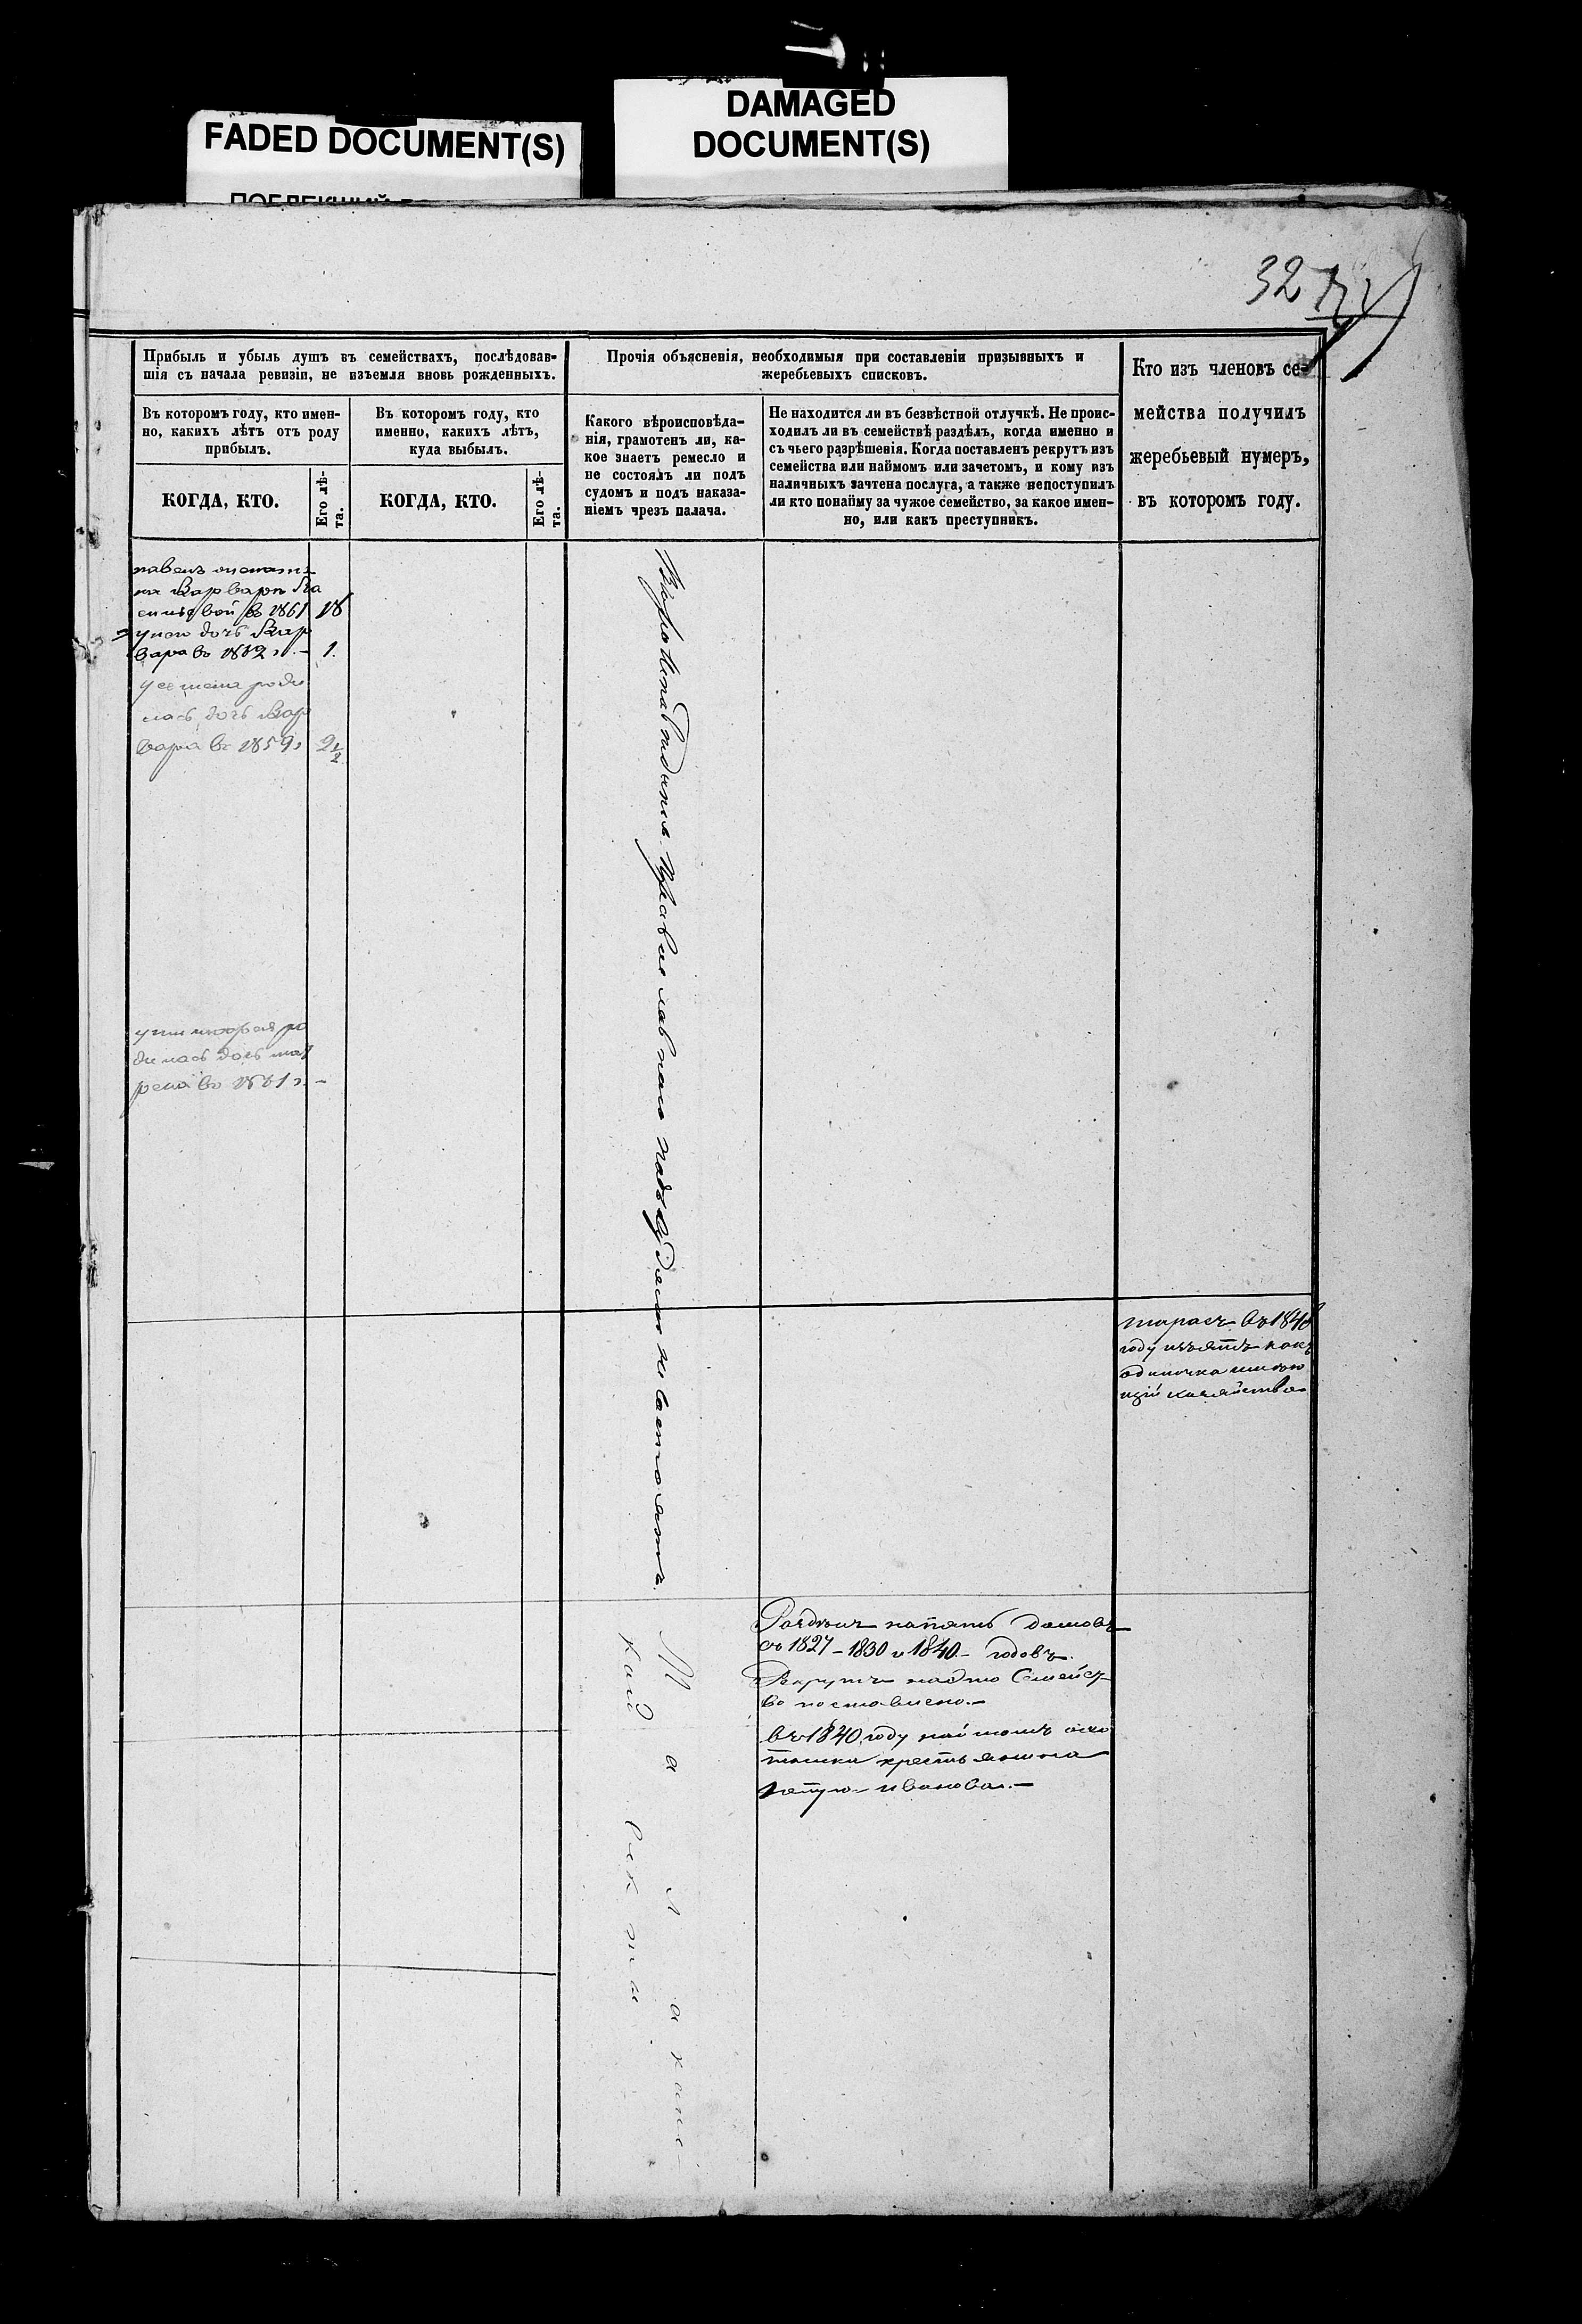 FADED DOCUMENT(S)
DAMAGED
DOCUMENT(S)
32
Прибыль и убыль душъ въ семействахъ, послѣдовав-
шія съ начала ревизіи, не изъемля вновь рожденныхъ.
Въ которомъ году, кто имен-
но, какихъ лѣтъ отъ роду
прибылъ.
КОГДА, КТО.
Его лѣ-
та.
Въ которомъ году, кто
именно, какихъ лѣтъ,
куда выбылъ.
КОГДА, КТО.
Его лѣ-
та.
Прочія объясненія, необходимыя при составленіи призывныхъ и
жеребьевыхъ списковъ.
Какого вѣроисповѣда-
нія, грамотенъ ли, ка-
кое знаетъ ремесло и
не состоялъ ли подъ
судомъ и подъ наказа-
ніемъ чрезъ палача.
Не находится ли въ безвѣстной отлучкѣ. Не проис-
ходилъ ли въ семействѣ раздѣлъ, когда именно и
съ чьего разрѣшенія. Когда поставленъ рекрутъ изъ
семейства или наймомъ или зачетомъ, и кому изъ
наличныхъ зачтена послуга, а также непоступилъ
ли кто понайму за чужое семейство, за какое имен-
но, или какъ преступникъ.
Кто изъ членовъ се-
мейства получилъ
жеребьевый нумеръ,
въ которомъ году.
въ 1861 18
дочь Вар
вара въ 1862 г. – 1.
роди
лась дочь Вар
вара въ 1859 г 2 1/2
ро
дилась дочь мат
рена въ 1861 г. –
православнаго подъ судомъ не состоятъ
тарасъ въ 1848
году изъятъ какъ
одиночка имѣю
щій хозяйство
Раздѣлъ на пять домовъ
въ 1827 – 1830 и 1840 – годовъ.
Рекрутъ Семейст
во поставлено. –
въ 1840 году
крестьянина
Петра Иванова. –
М а л а к а н с
к о й с е к т ы